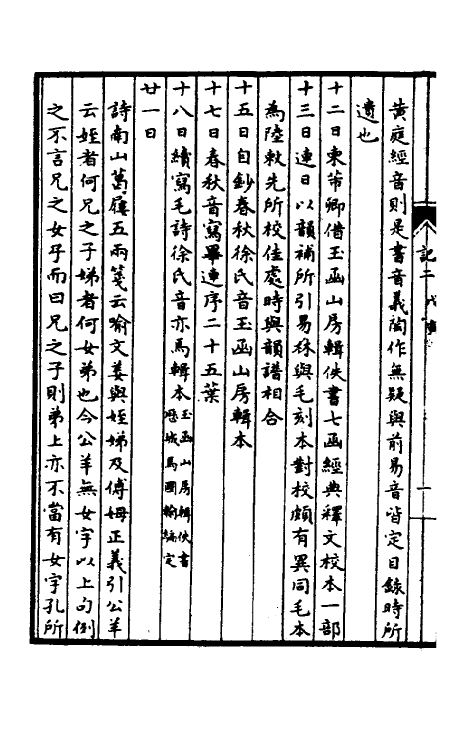 黃庭經音則是書音義陶作無疑與前易音皆定目錄時所
遺也
十二日束芾卿借玉函山房輯佚書七函經典釋文校本一部
十三日連日以韻補所引易林與毛刻本對校頗有異同毛本
為陸敕先所校佳處時與韻譜相合
十五日自鈔春秋徐氏音玉函山房輯本
十七日春秋音寫畢連序二十五葉
十八日續寫毛詩徐氏音亦馬輯本玉函山房輯佚書
歷城馬國翰編定
廿一日
詩南山葛屨五兩箋云喻文姜與姪娣及傅姆正義引公羊
云姪者何兄之子娣者何女弟也今公羊無女字以上句例
之不言兄之女子而曰兄之子則弟上亦不當有女字孔所
記二
一